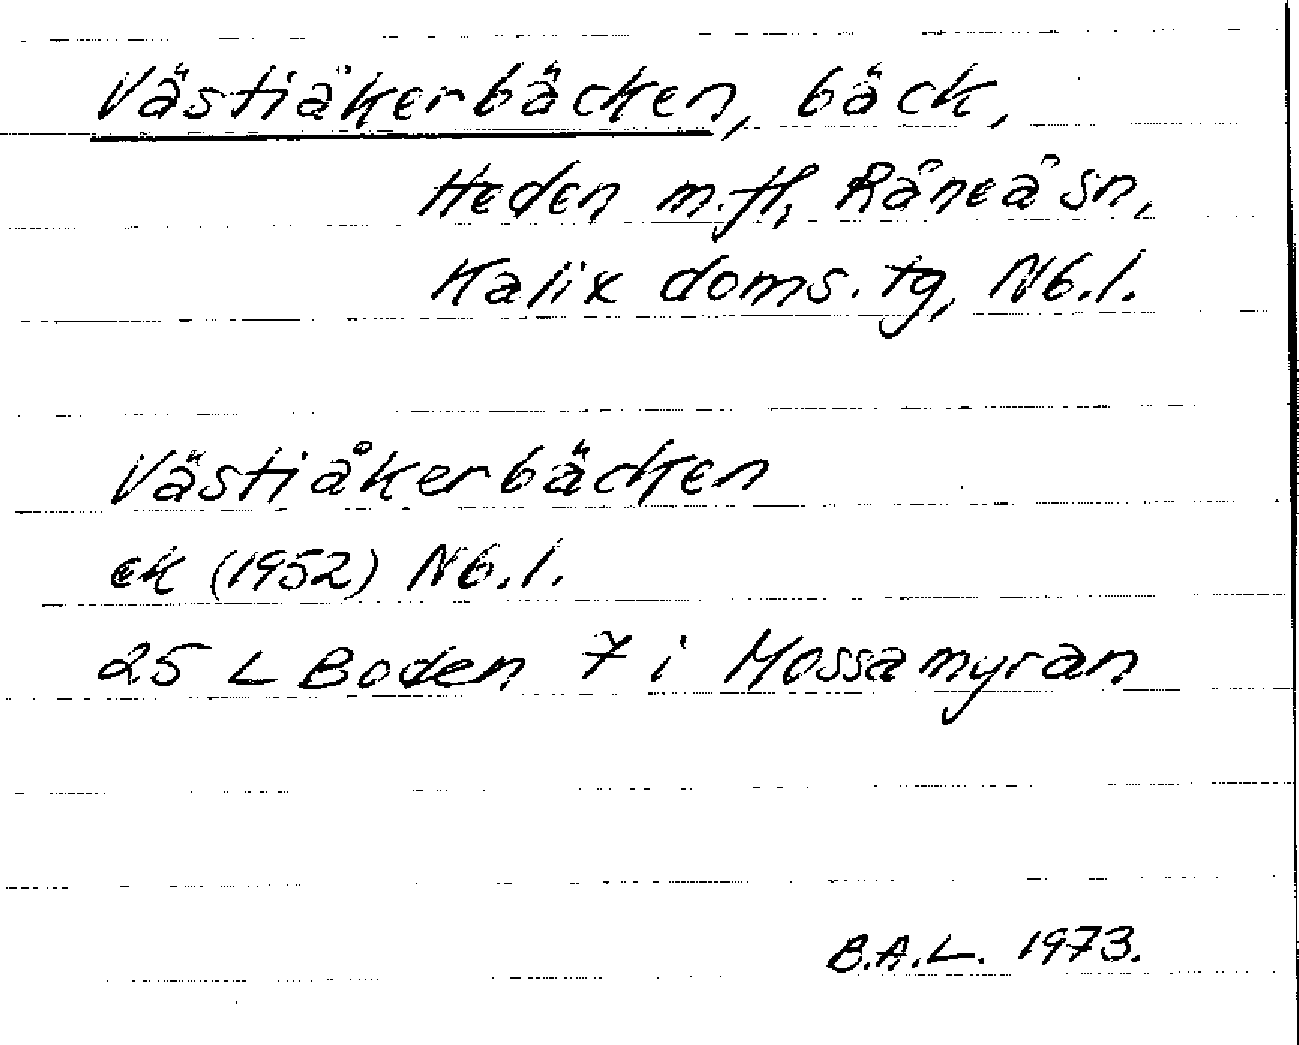 Västiåkerbäcken, bäck,
Heden m.fl, Råneå sn,
Kalix doms. tg, Nb.l.
Västiåkerbäcken
ek (1952) Nb.l.
25 L Boden 7 i Mossamyran
B.A.L. 1973.